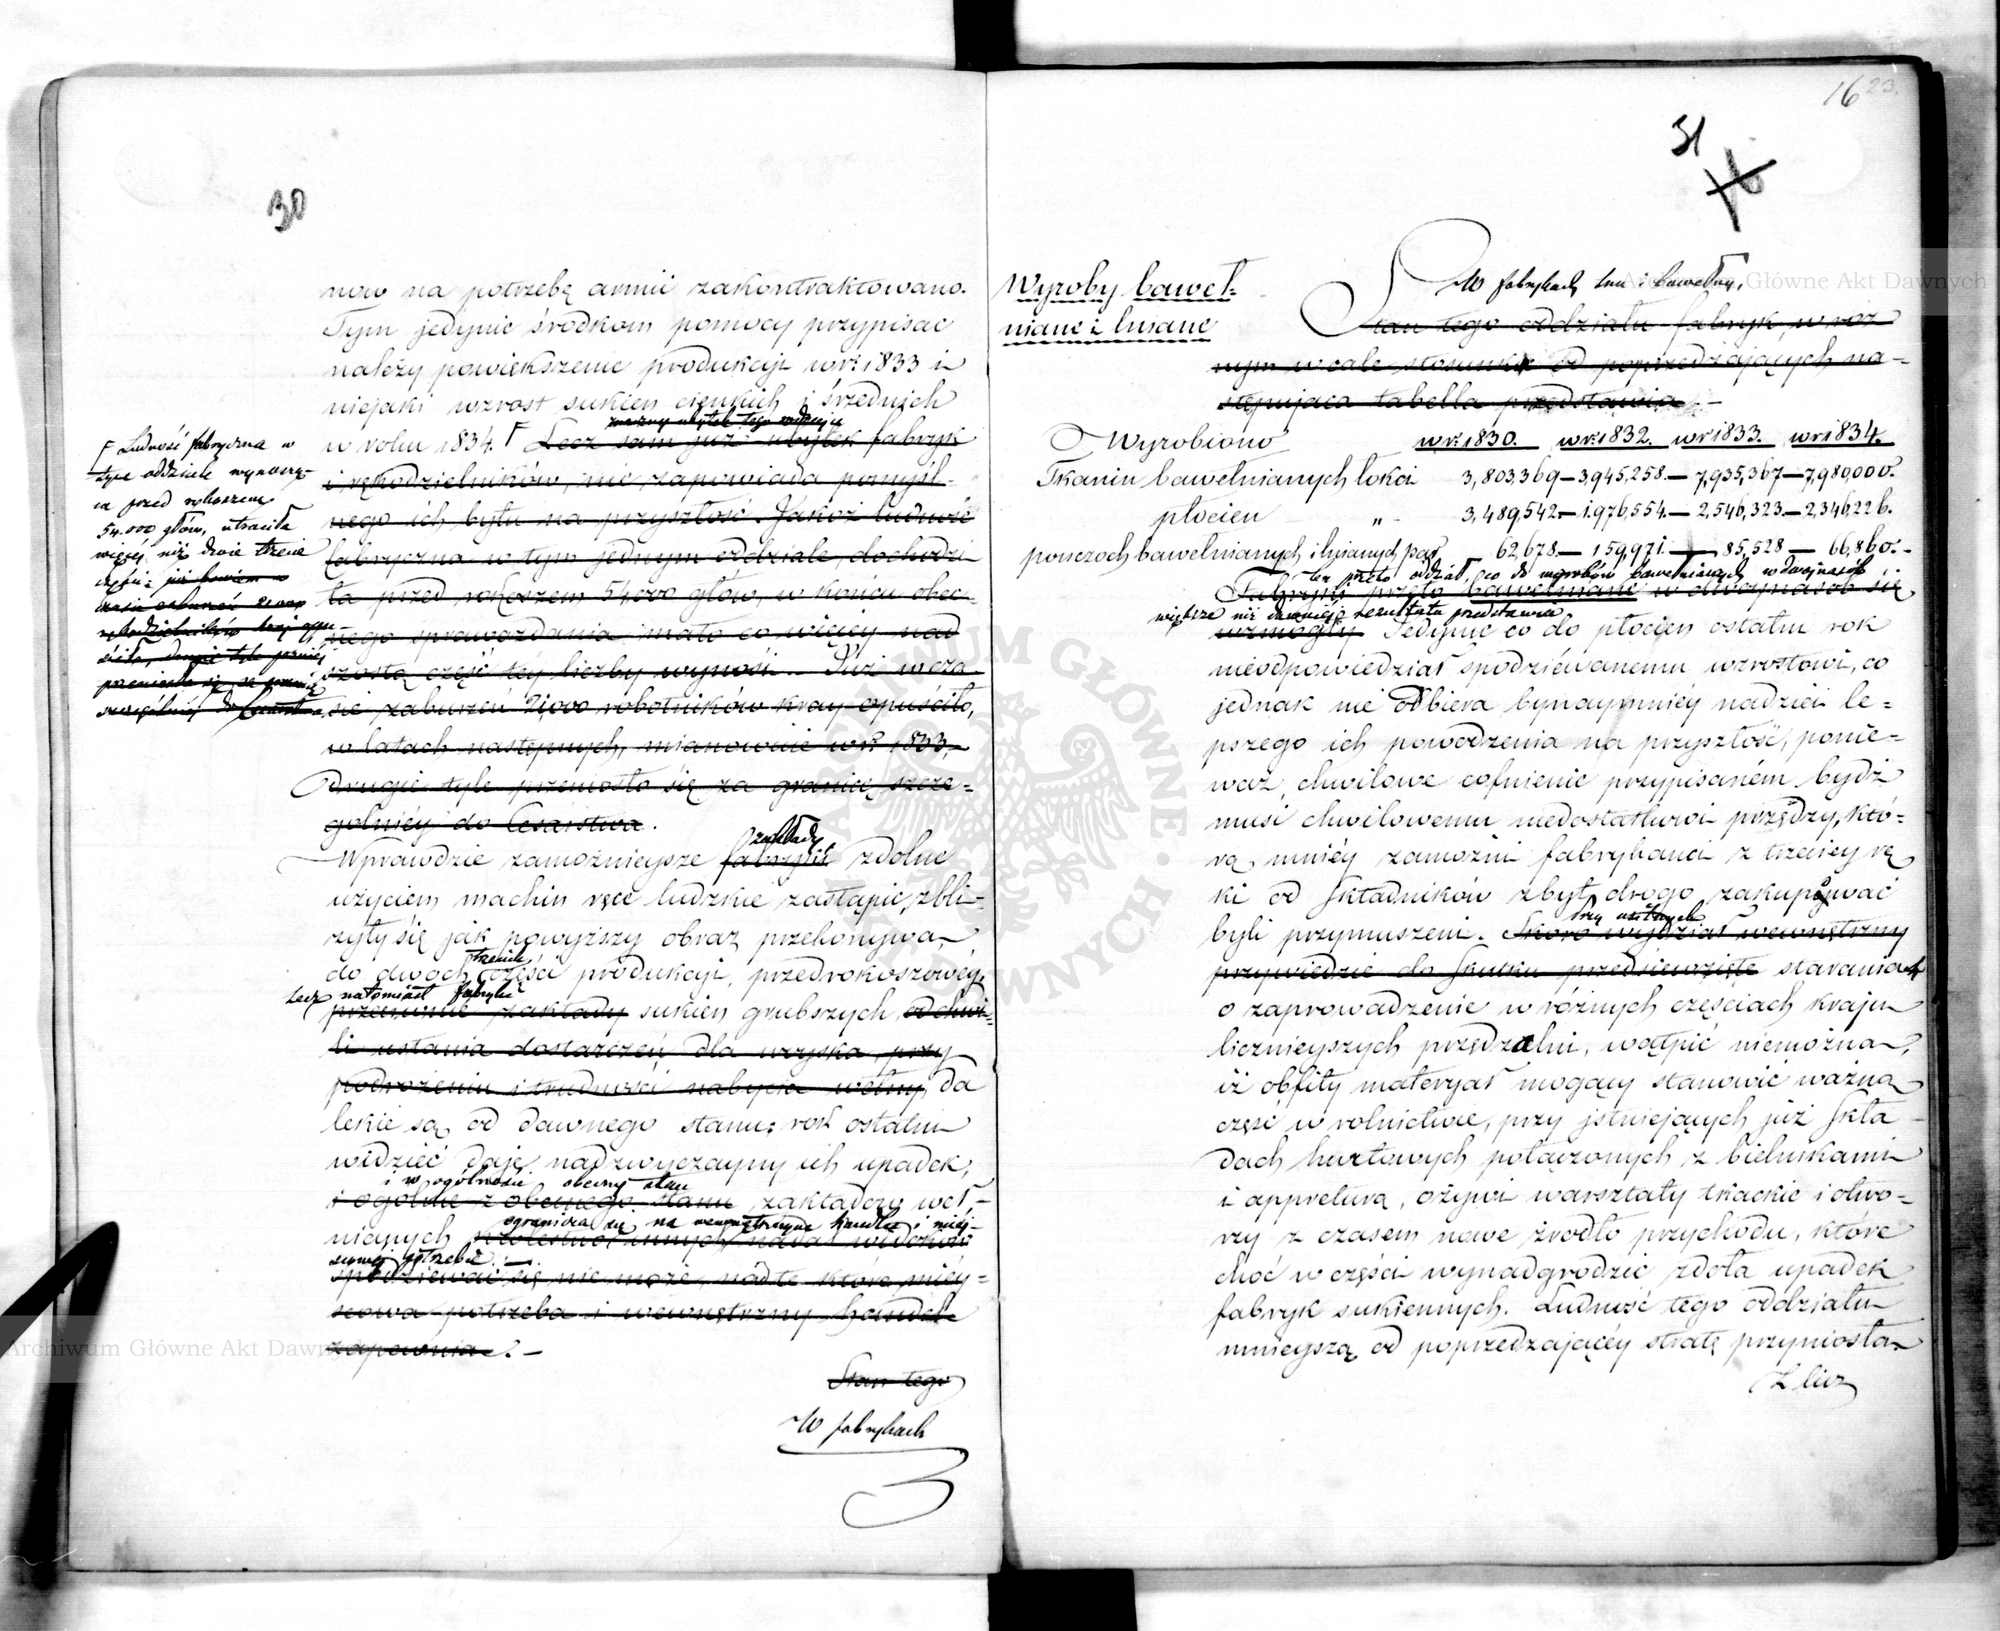 30
now na potrzebę armii zakontraktowano.
Tym jedynie środkom pomocy przypisać
należy powiększenie produkcji w r. 1833 i
niejaki wzrost sukien cienkich i śrzednich
znaczny ubytek tego rodzaju
w roku 1834. Γ Lecz sam już ubytek fabryk
i rękodzielników, nie zapowiada pomyśl-
nego ich bytu na przyszłość. Jakoż ludność
fabryczna w tym jednym oddziale, dochodzi-
ła przed rokoszem 54,000 głów, w końcu obec-
nego sprawozdania mało co więcéj nad
szóstą część téy liczby wynosi. Już w cza-
sie zaburzeń 21,000 robotników kray opuściło,
w latach następnych, mianowicie w r. 1833,
drugie tyle przeniosło się za granicę szcze-
gólniéy do Cesarstwa.
Γ Ludność fabryczna w
tym oddziale wynosząc-
ca przed rokoszem
54.000 głów, utraciła
więcej niż dwie trzecie
części; już bowiem w
czasie zaburzeń 21,000
rękodzielników kraj opu-
ściło, drugie tyle później
przeniosło się za granicę
szczególniej do Cesarstwa
zakłady
Wprawdzie zamożniejsze fabryki zdolne
użyciem machin ręce ludzkie zastąpić, zbli-
żyły się jak powyższy obraz przekonywa,
trzecich
do dwóch części produkcji, przedrokoszowéy,
lecz natomiast fabryki
przeciwnie zakłady sukien grubszych, od chwi-
li ustania dostarczeń dla woyska, przy
podrożeniu i trudności nabycia wełny, da
lekie są od dawnego stanu; rok ostatni
widzieć daje nadzwyczayny ich upadek,
i w ogólności obecny stan
i ogólnie z obecnego stanu zakładów weł-
ogranicza się na wewnętrznym handlu i miéj-
nianych kolestnosc innych nadal widoków
scowej potrzebie.
spodziewać się nie może, nad te które miéy-
scowa potrzeba i wewnętrzny handel
zapewnia. –
Stan tego
W fabrykach
16 23.
31
16
Wyroby baweł-
niane i lniane
W fabrykach lnu i bawełny,
Stan tego oddziału fabryk, w róż
nym wcale stosunku od poprzedzających, na-
stępująca tabella przedstawia. –
Wyrobiono w r. 1830. w r. 1832. w r 1833. w r 1834.
Tkanin bawełnianych łokci 3,803,369 – 3,945,258. – 7,935,367 – 7,980,000.
płócien „ 3,489,542. – 1,976,554. – 2,546,323. – 2,346,226.
pończoch bawełnianych i lnianych par, 62,678. – 159,971. – 85,528 – 66,860. –
ten przeto oddział, co do wyrobów bawełnianych w dwójnasób
Fabryki przeto bawełniane w dwójnasób się
większe niż dawniej rezultata przedstawia.
wzmogły. Jedynie co do płócien ostatni rok
nieodpowiedział spodziéwanemu wzrostowi, co
jednak nie odbiera bynaymniéy nadziei le-
pszego ich powodzenia na przyszłość, ponie-
waż, chwilowe cofnienie przypisaném bydź
musi chwilowemu niedostatkowi przędzy, któ-
rą, mniéy zamożni fabrykanci z trzeciéy rę
ki od składników zbyt drogo zakupywać
przy usilnych
byli przymuszeni. Skoro wydział wewnętrzny
przywiedzie do skutku przedsięwzięte staraniach
o zaprowadzenie w różnych częściach kraju
licznieyszych przędzalni, wątpić niemożna,
iż obfity materyał mogący stanowić ważną
część w rolnictwie, przy jstniejących już skła-
dach hurtowych połączonych z bielnikami
i appreturą, ożywi warsztaty tkackie i otwo-
rzy z czasem nowe źródło przychodu, które
choć w części wynadgrodzić zdoła upadek
fabryk sukiennych. Ludność tego oddziału
mnieyszą od poprzedzającéy stratę przyniosła.
Z licz
ARCHIWUM GŁÓWNE AKT DAWNYCH
Archiwum Główne Akt Dawnych
Archiwum Główne Akt Dawnych